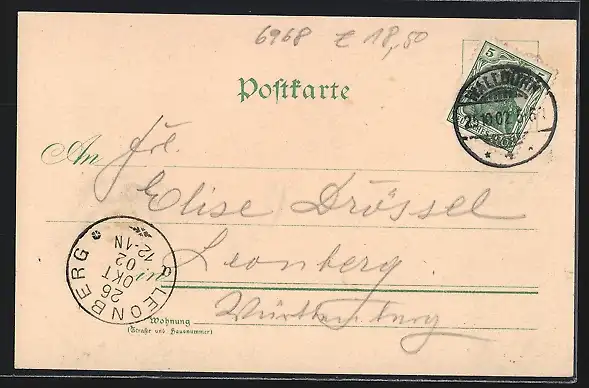 6968 € 18,50
Postkarte
5
WALLDÜRN
25.10.02
An Frl.
Elise Drössel
in Leonberg
Württemburg
Wohnung
(Straße und Hausnummer)
LEONBERG
26
OKT
02
12-1N